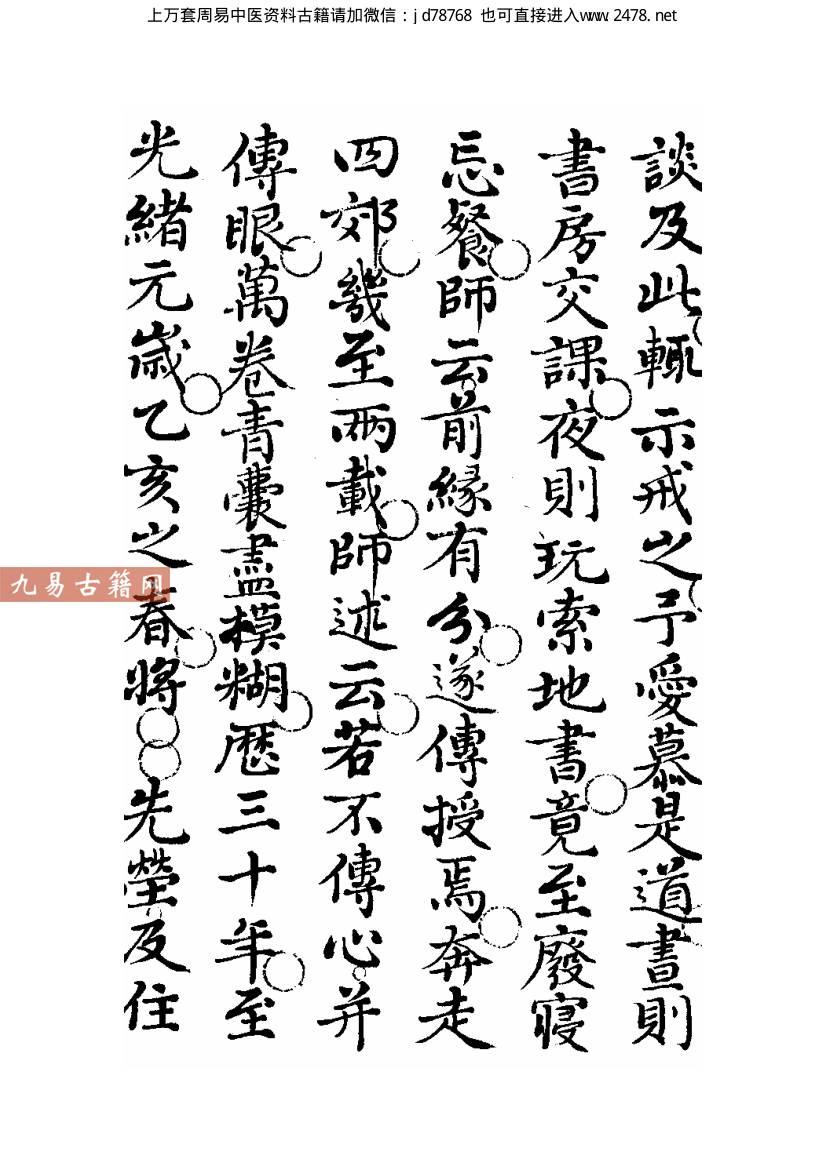 上万套周易中医资料古籍请加微信：jd78768 也可直接进入www.2478.net
談及此輒示戒之予愛慕是道晝則
書房交課夜則玩索地書竟至廢寢
忘餐師云前緣有分遂傳授焉奔走
四郊幾至兩載師述云若不傳心并
傳眼萬卷青囊盡模糊歷三十年至
光緒元歲乙亥之春將〇〇先塋及住
九易古籍网